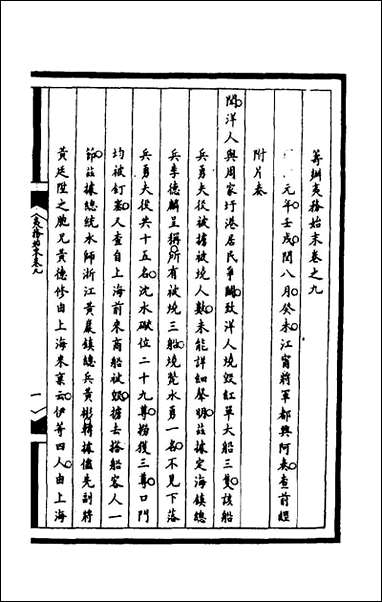 籌辦夷務始末卷之九
元年壬戌閏八月癸未江甯將軍都興阿奏查前經
附片奏
聞洋人與周家圩港居民爭鬭致洋人燒毀紅單大船三隻該船
兵勇夫役被擄被燒人數未能詳細聲明茲據定海鎮總
兵李德麟呈稱所有被燒三船燒斃水勇一名不見下落
兵勇夫役共十五名沈水礮位二十九尊撈獲三尊口門
均被釘塞又查自上海前來商船被毀擄去搭船客人一
節茲據總統水師浙江黃巖鎮總兵黃彬轉據儘先副將
黃廷陞之胞兄黃德修由上海來稟云伊等四人由上海
夷務始末卷九
一